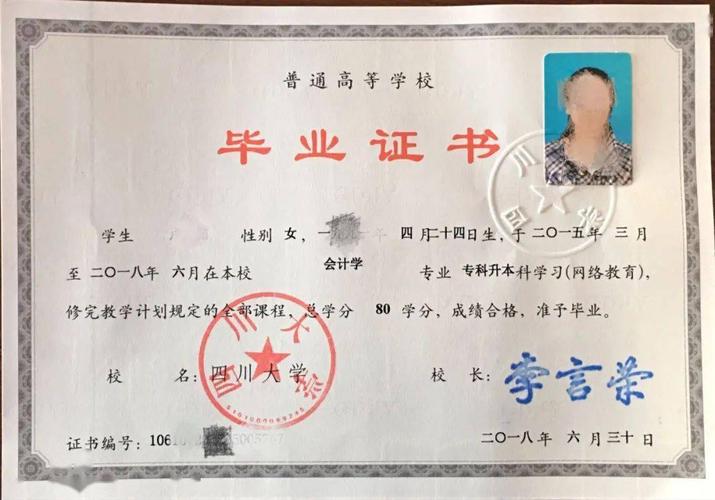 普通高等学校
毕业证书
学生 性别 女，一 年 四 月二十四日生，于二〇一五年 三 月
至 二〇一八年 六月在本校 会计学 专业 专科升本科学习(网络教育)，
修完教学计划规定的全部课程，总学分 80 学分，成绩合格，准予毕业。
校 名：四川大学 校 长：李言荣
证书编号：106
二〇一八年 六 月三十日
四川大学